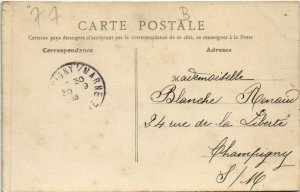 77
B
CARTE POSTALE
Certains pays étrangers n'acceptant pas la correspondance de ce côté, se renseigner à la Poste.
Correspondance
Adresse
IGNY MARNE
30
9
Mademoiselle
Blanche Renaud
24 rue de la Liberté
Champigny
S/M